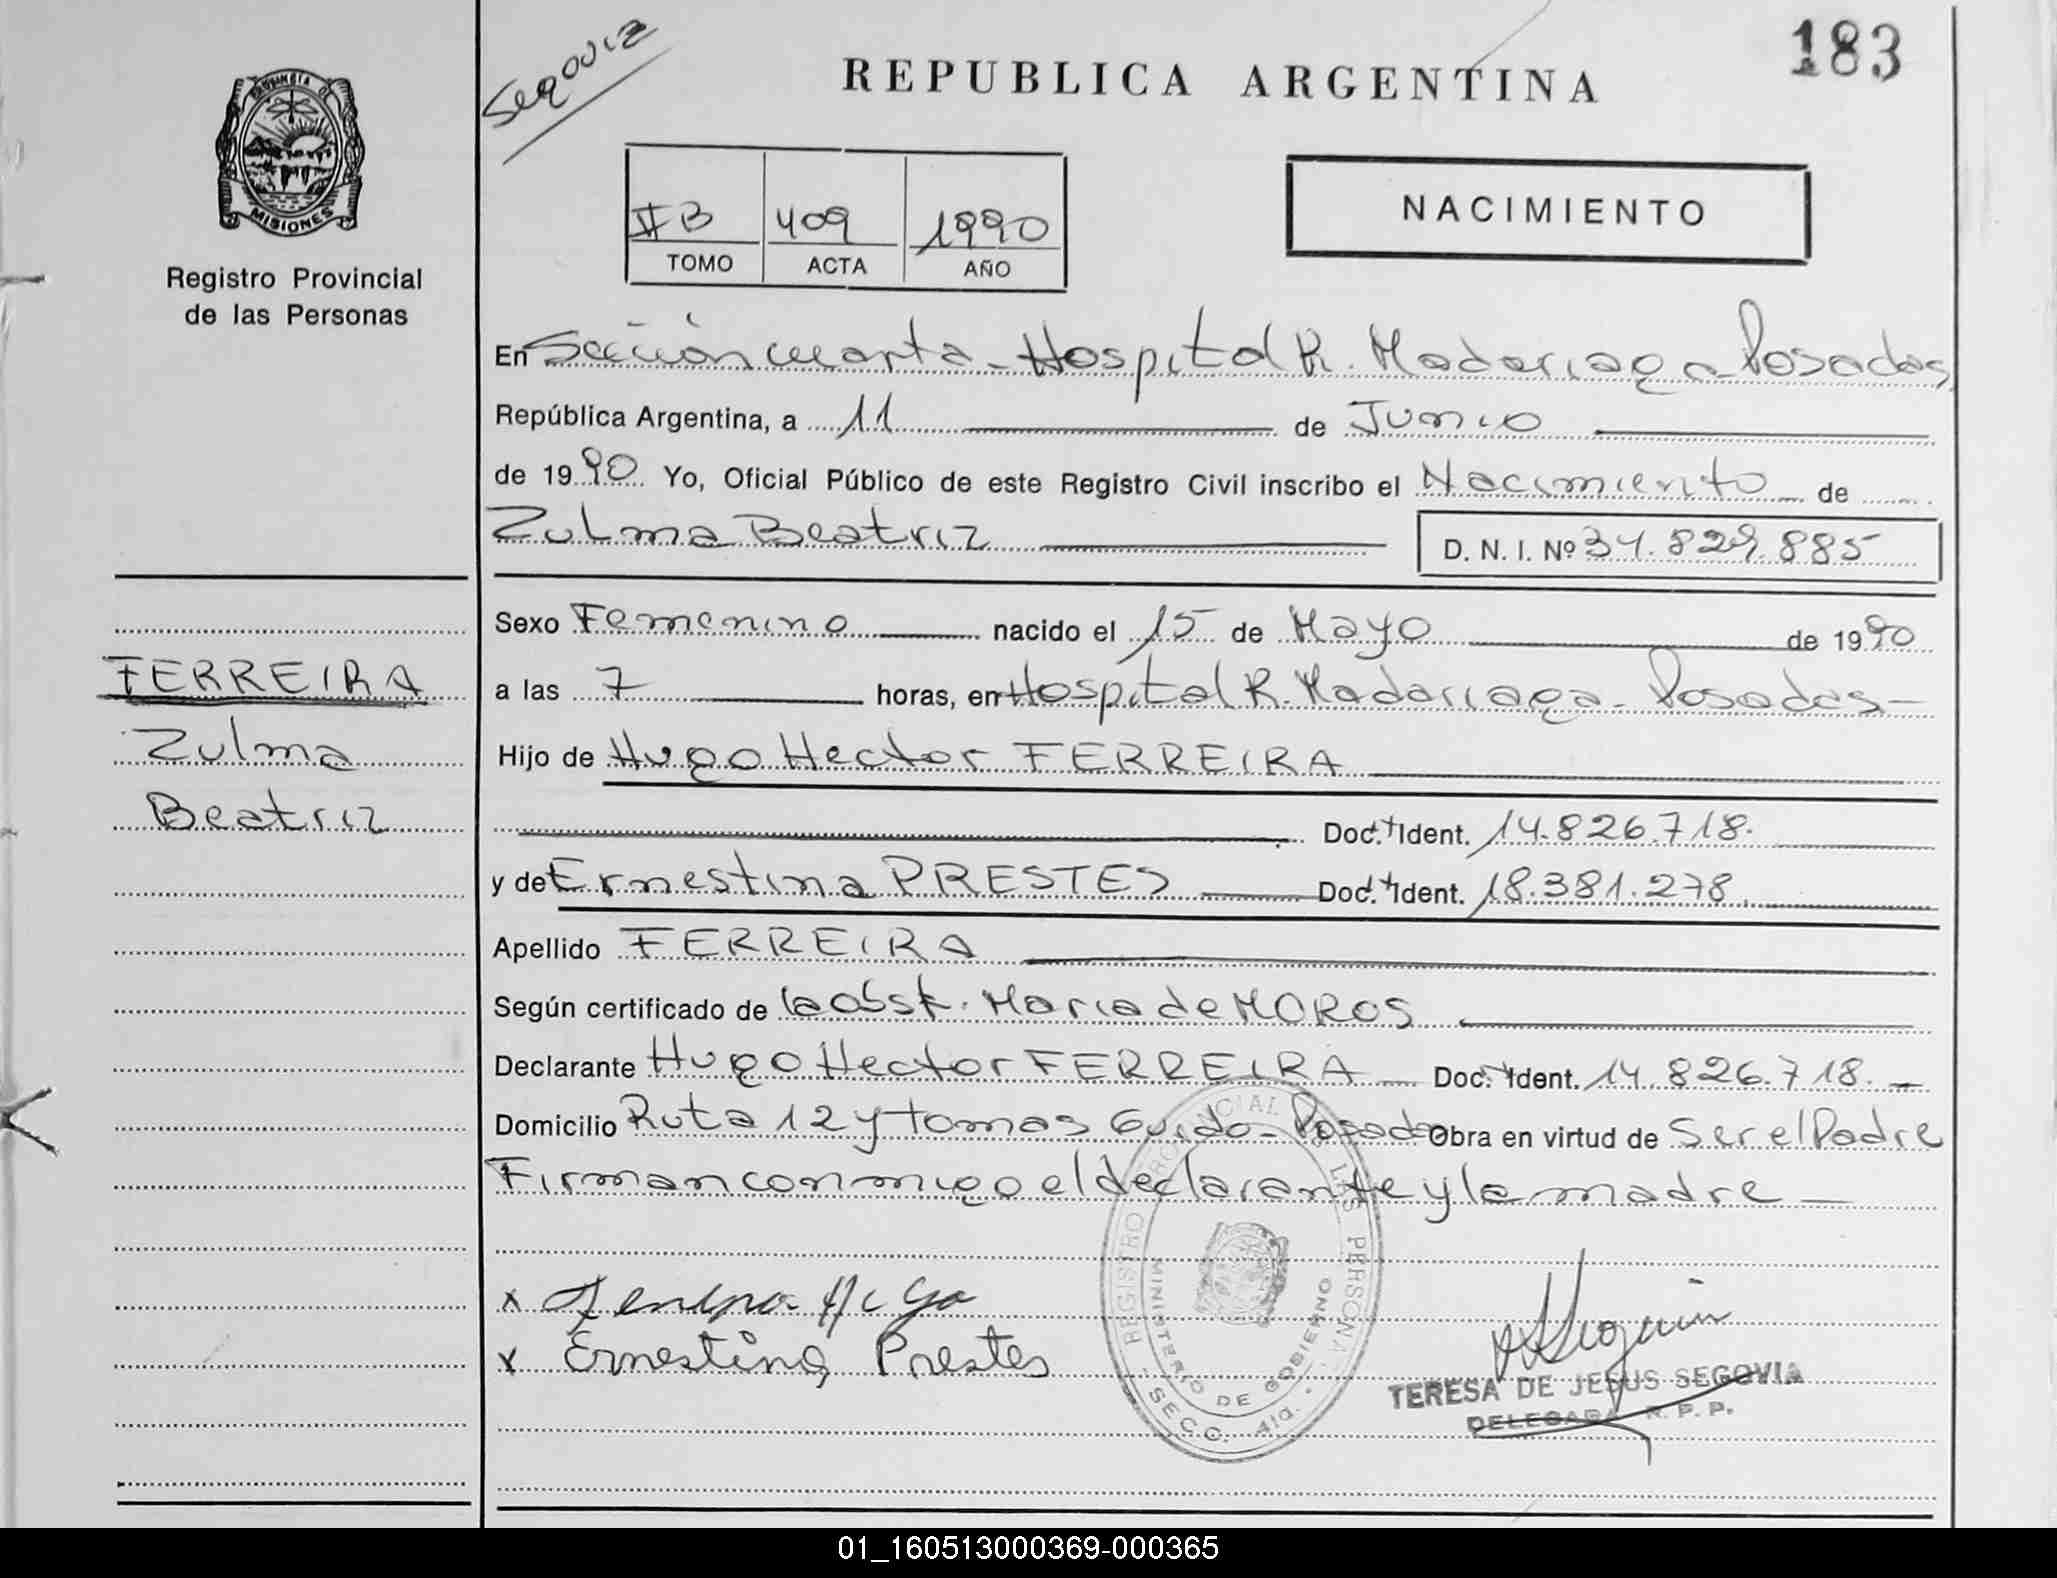 183
Seqouiz
REPUBLICA ARGENTINA
PROVINCIA DE
MISIONES
Registro Provincial
de las Personas
IIB 409 1990
TOMO ACTA AÑO
NACIMIENTO
En Sección cuarta - Hospital R. Madariaga - Posadas,
República Argentina, a 11 de Junio
de 1990 Yo, Oficial Público de este Registro Civil inscribo el Nacimiento de
Zulma Beatriz D. N. I. Nº 34.829.885
Sexo Femenino nacido el 15 de Mayo de 1990
a las 7 horas, en Hospital R. Madariaga - Posadas -
Hijo de Hugo Hector FERREIRA
Doc. Ident. 14.826.718.
y de Ernestina PRESTES Doc. Ident. 18.381.278.
Apellido FERREIRA
Según certificado de la obst. Maria de MOROS
Declarante Hugo Hector FERREIRA Doc. Ident. 14.826.718. -
Domicilio Ruta 12 y tomas Guido - Posadas Obra en virtud de Ser el Padre
Firman conmigo el declarante y la madre -
FERREIRA
Zulma
Beatriz
x
x Ernestina Prestes
REGISTRO PROVINCIAL DE LAS PERSONAS
MINISTERIO DE GOBIERNO
- SECC. 4ta. -
TERESA DE JESUS SEGOVIA
DELEGADA R. P. P.
01_160513000369-000365